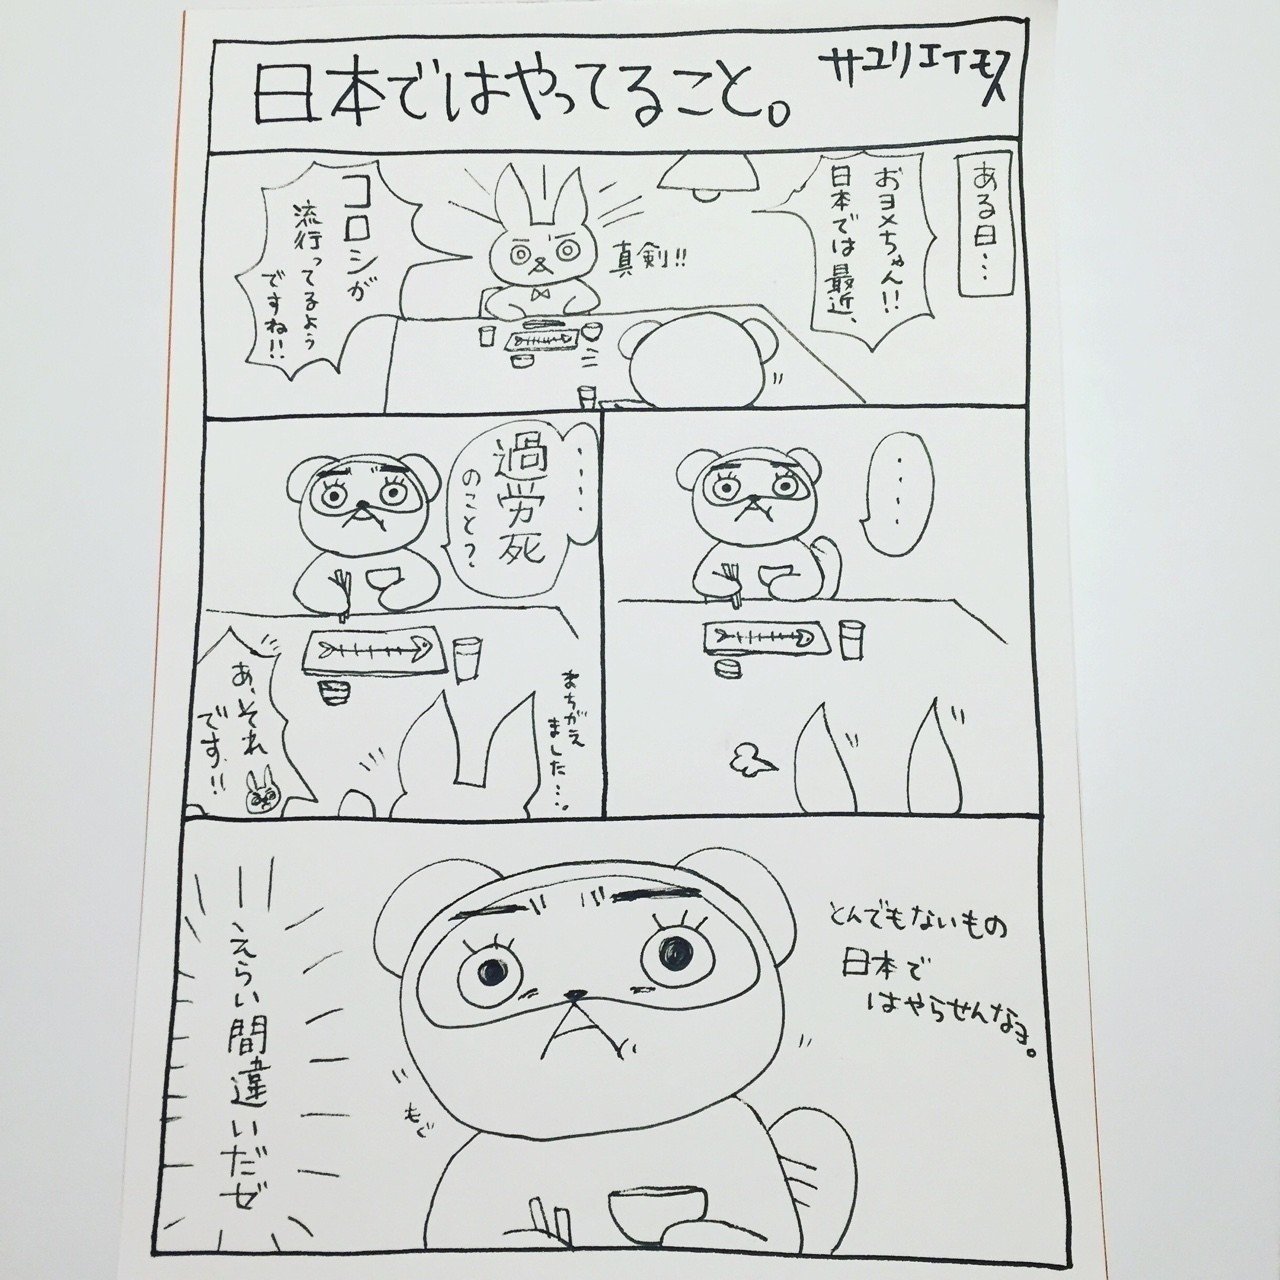 日本ではやってること。
サユリエイモス
ある日…
おヨメちゃん!!
日本では最近、
真剣!!
コロシが
流行ってるよう
ですね!!
・・・・
・・・・
過労死
のこと?
あ、それ
です!!
まちがえ
ました…
とんでもないもの
日本で
はやらせんなヨ。
もご
えらい間違いだゼ